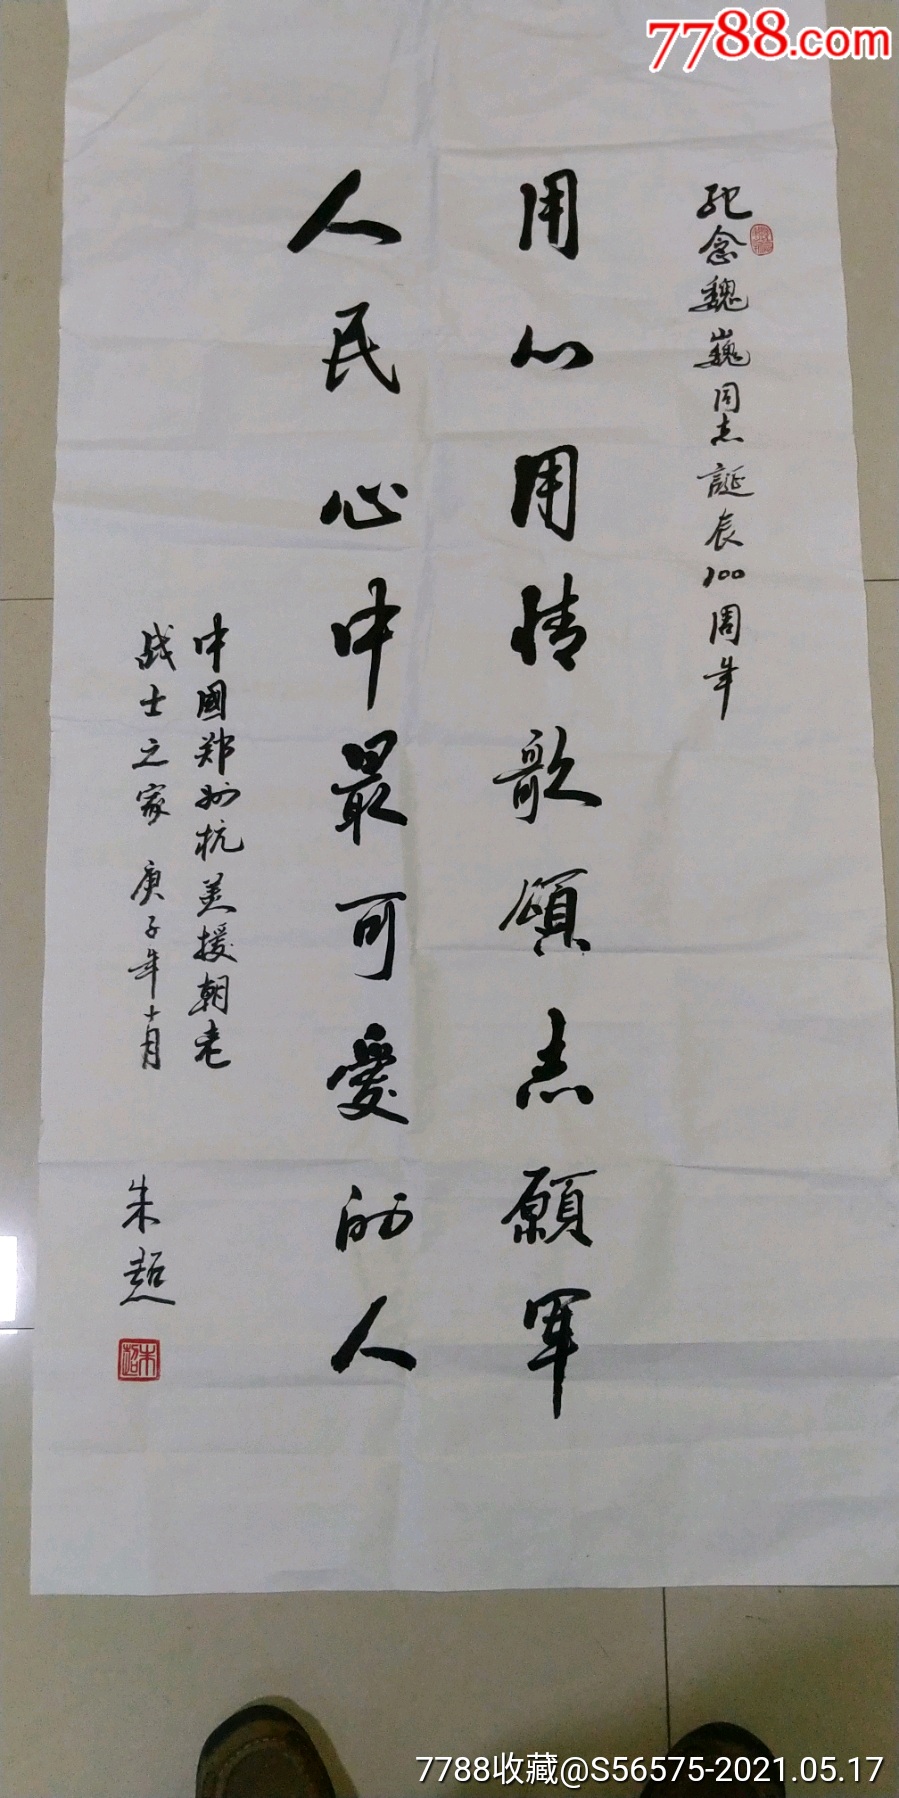 7788.com
纪念魏巍同志誕辰100周年
用心用情歌頌志願军
人民心中最可爱的人
中國郑州抗美援朝老
战士之家 庚子年十月
朱超
朱超
7788收藏@S56575-2021.05.17